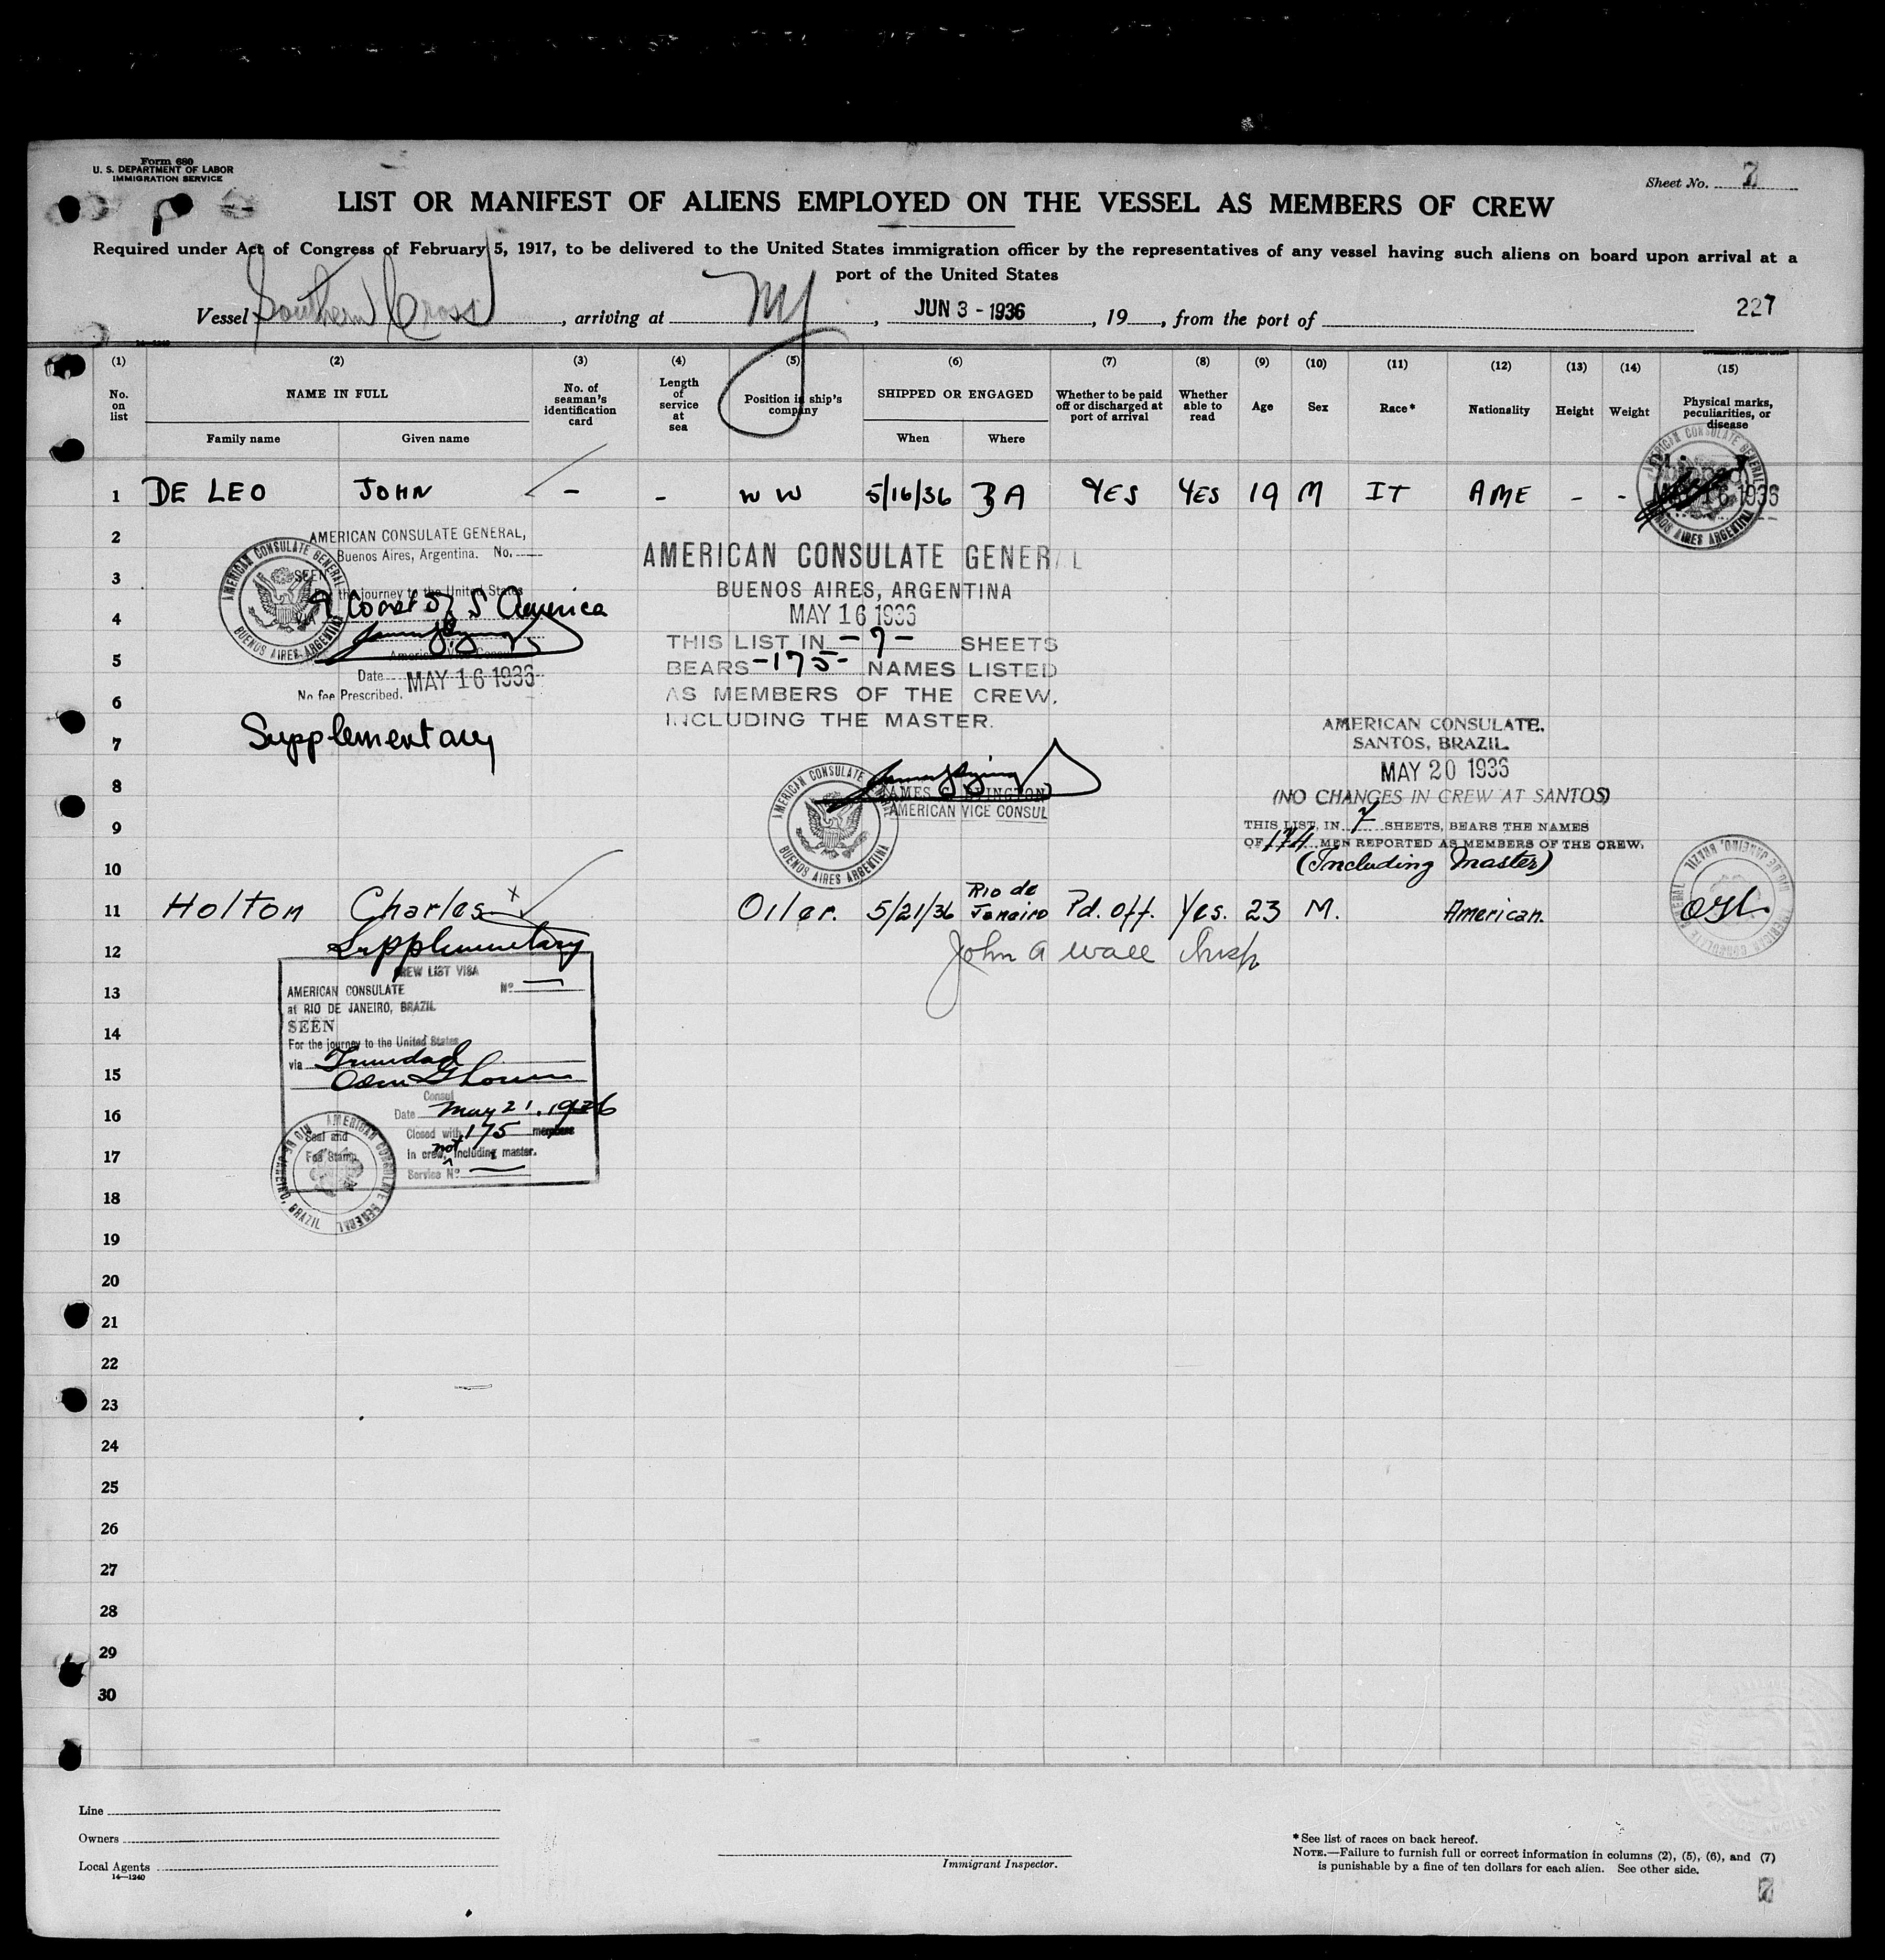 Form 680
U. S. DEPARTMENT OF LABOR
IMMIGRATION SERVICE
Sheet No. 7
LIST OR MANIFEST OF ALIENS EMPLOYED ON THE VESSEL AS MEMBERS OF CREW
Required under Act of Congress of February 5, 1917, to be delivered to the United States immigration officer by the representatives of any vessel having such aliens on board upon arrival at a
port of the United States
Vessel Southern Cross, arriving at NY, JUN 3 - 1936, 19, from the port of 227
14-1240
(1) (2) (3) (4) (5) (6) (7) (8) (9) (10) (11) (12) (13) (14) (15)
No. on list
NAME IN FULL
Family name Given name
No. of seaman's identification card
Length of service at sea
Position in ship's company
SHIPPED OR ENGAGED
When Where
Whether to be paid off or discharged at port of arrival
Whether able to read
Age
Sex
Race*
Nationality
Height
Weight
Physical marks, peculiarities, or disease
1 DE LEO JOHN - - W W 5/16/36 BA YES YES 19 M IT AME - -
AMERICAN CONSULATE GENERAL BUENOS AIRES ARGENTINA
MAY 16 1936
2
AMERICAN CONSULATE GENERAL,
Buenos Aires, Argentina. No.
3
SEEN
the journey to the United States
4
Coast of S America
5
American Vice Consul
Date MAY 16 1936
6
No fee Prescribed.
AMERICAN CONSULATE GENERAL BUENOS AIRES ARGENTINA
7 Supplementary
AMERICAN CONSULATE GENERAL
BUENOS AIRES, ARGENTINA
MAY 16 1936
THIS LIST IN -7- SHEETS
BEARS -175- NAMES LISTED
AS MEMBERS OF THE CREW.
INCLUDING THE MASTER.
AMERICAN VICE CONSUL
AMERICAN CONSULATE BUENOS AIRES ARGENTINA
AMERICAN CONSULATE.
SANTOS, BRAZIL.
MAY 20 1936
(NO CHANGES IN CREW AT SANTOS)
THIS LIST, IN 7 SHEETS, BEARS THE NAMES
OF 174 MEN REPORTED AS MEMBERS OF THE CREW.
(Including Master)
8
9
10
11 Holton Charles x Oiler. 5/21/36 Rio de Janeiro Pd. off. Yes. 23 M. American.
AMERICAN CONSULATE GENERAL RIO DE JANEIRO, BRAZIL
12 Supplementary
John A Wall Insp
CREW LIST VISA
13
AMERICAN CONSULATE No
at RIO DE JANEIRO, BRAZIL
SEEN
14
For the journey to the United States
via Trinidad
15
Consul
16
Date May 21, 1936
Closed with 175 members
17
in crew, not including master.
Service No
Seal and
Fee Stamp
AMERICAN CONSULATE GENERAL RIO DE JANEIRO, BRAZIL
18
19
20
21
22
23
24
25
26
27
28
29
30
Line
Owners
Local Agents
14-1240
Immigrant Inspector.
*See list of races on back hereof.
NOTE.—Failure to furnish full or correct information in columns (2), (5), (6), and (7)
is punishable by a fine of ten dollars for each alien. See other side.
7